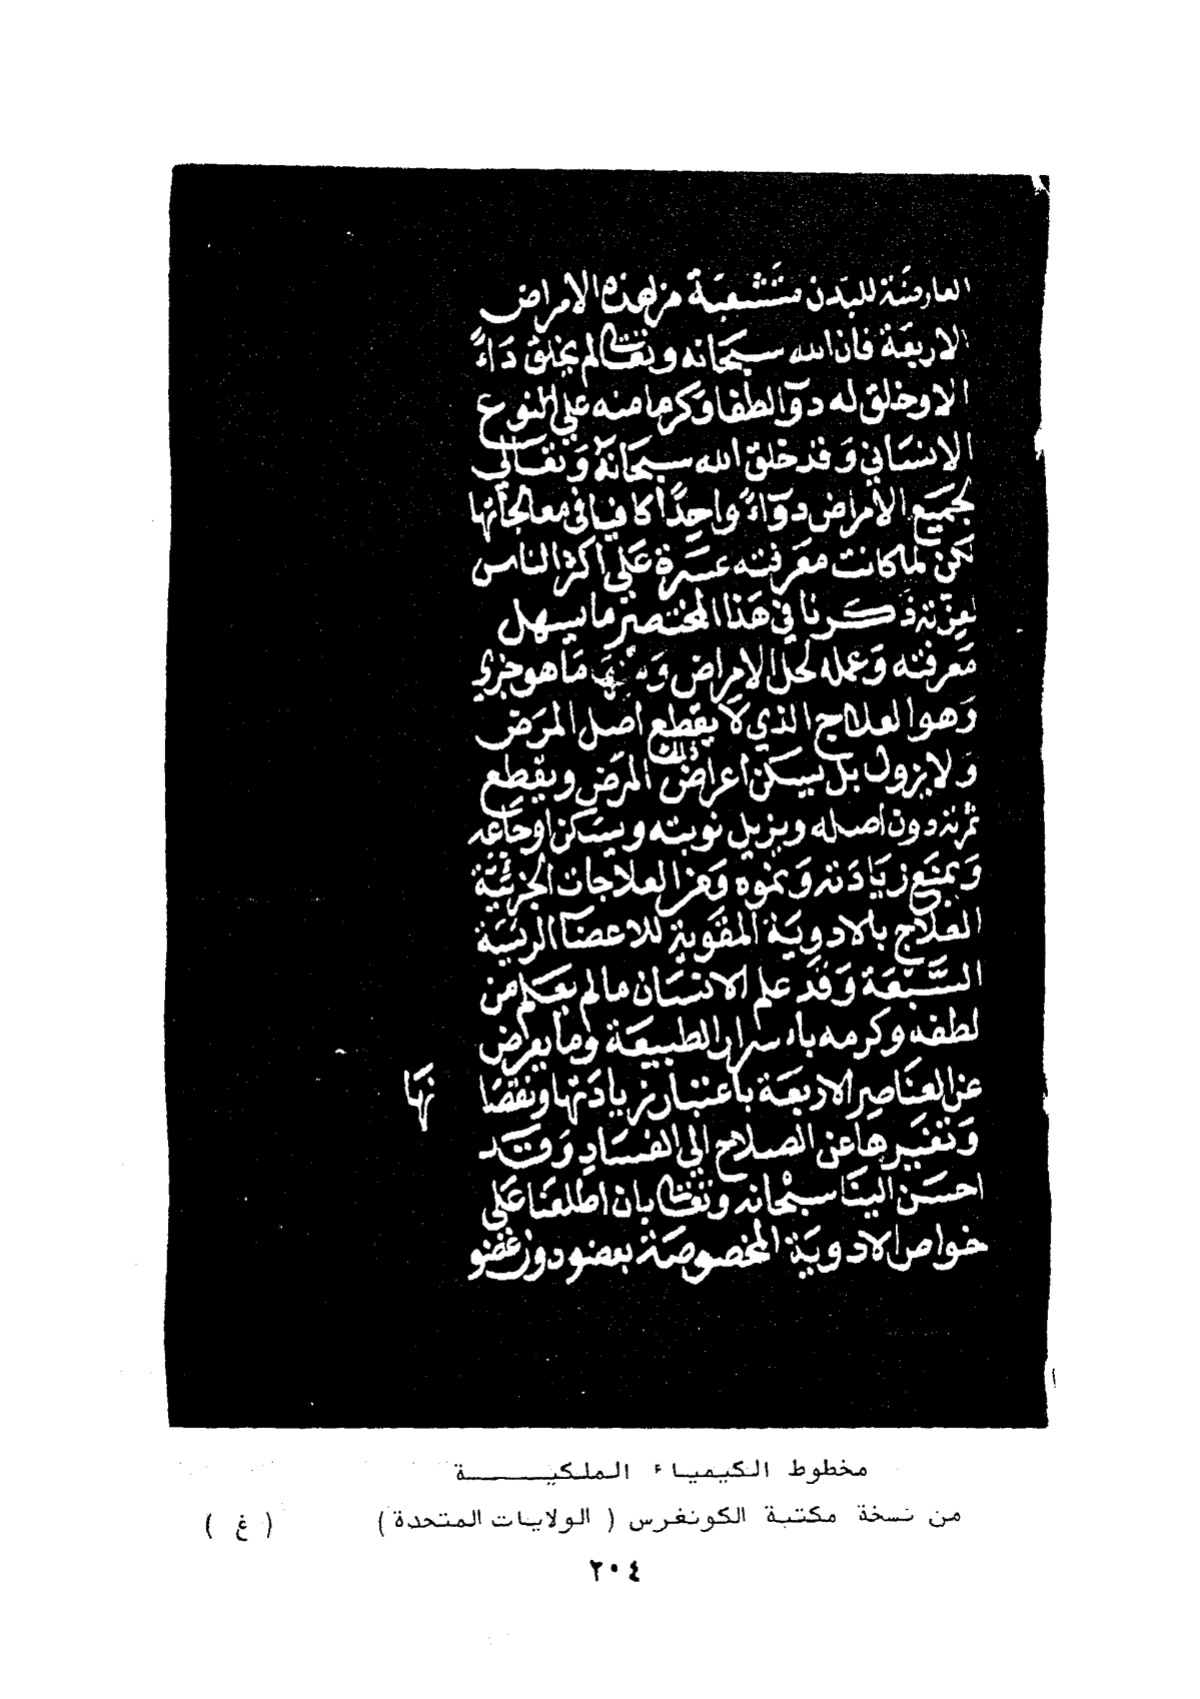 العارضة للبدن متشعبة من هذه الامراض
الاربعة فان الله سبحانه وتعالى لم يخلق دَاءً
الا وخلق له دوآ لطفا وكرما منه علي النوع
الانساني وقد خلق الله سبحانه وتعالي
لجميع الأمراض دوآءً واحدًا كافيا في معالجاتها
لكن لما كانت معرفته عسرة علي اكثر الناس
لعزته ذكرنا في هذا المختصر ما يسهل
معرفته وعمله لحل الامراض ما هو جزي
وهو العلاج الذي لا يقطع اصل المرض
ولا يزول بل يسكن اعراض ذلك المرض ويقطع
ثمرته دون اصله ويزيل نوبته ويسكن اوجاعه
ويمنع زيادته ونموه ومن العلاجات الجزئية
العلاج بالادوية المقوية للاعضا الرئيية
السَّبْعَة وقد علم الانسان مالم يعلم من
لطفه وكرمه باسرار الطبيعة وما يعرض
عن العناصر الاربعة باعتبار زيادتها ونقصا نها
وتغيرها عن الصلاح الي الفساد وقد
احسن الينا سبحانه وتعالى بان اطلعنا على
خواص الادوية المخصوصة بعضو دون عضو
مخطوط الكيمياء الملكيـــــة
من نسخة مكتبة الكونغرس ( الولايات المتحدة ) ( غ )
٢٠٤